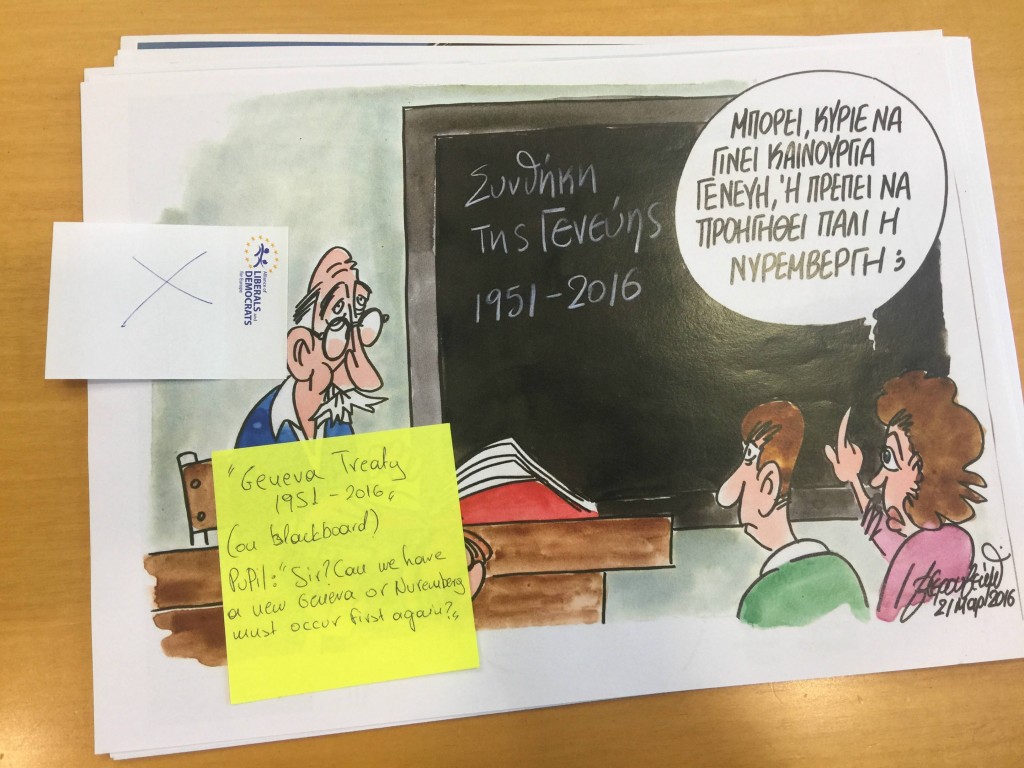 Συνθήκη
της Γενεύης
1951-2016
ΜΠΟΡΕΙ, ΚΥΡΙΕ ΝΑ
ΓΙΝΕΙ ΚΑΙΝΟΥΡΓΙΑ
ΓΕΝΕΥΗ, Ή ΠΡΕΠΕΙ ΝΑ
ΠΡΟΗΓΗΘΕΙ ΠΑΛΙ Η
ΝΥΡΕΜΒΕΡΓΗ;
Alliance of
LIBERALS and
DEMOCRATS
for Europe
"Geneva Treaty
1951-2016"
(on blackboard)
Pupil: "Sir? Can we have
a new Geneva or Nuremberg
must occur first again?"
21 Μαρ 2016